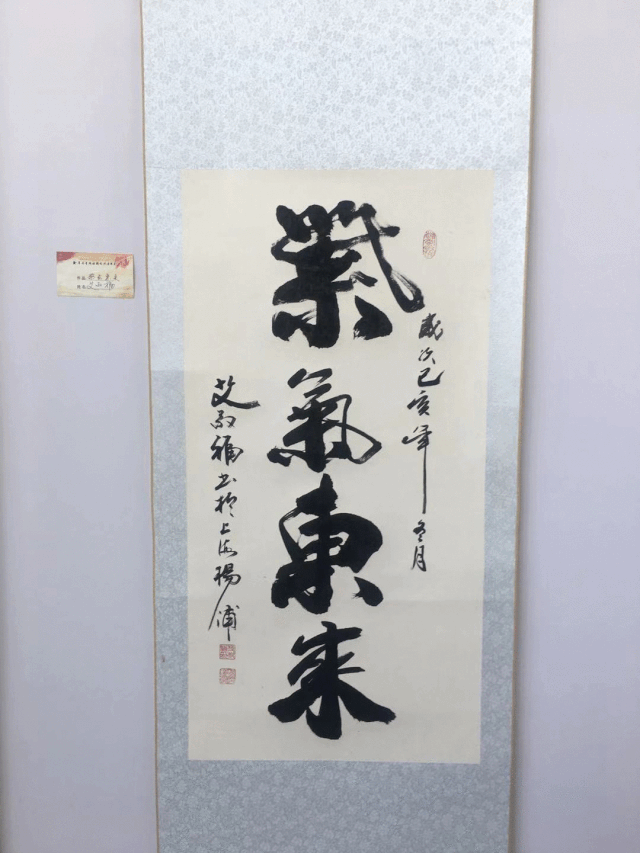 歲次己亥年冬月
紫氣東來
艾敬福书於上海楊浦